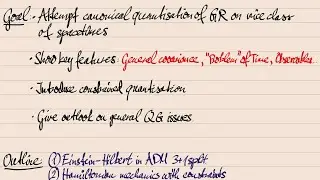 Goal: · Attempt canonical quantisation of GR on nice class
of spacetimes
· Show key features: General covariance, "Problem of Time", Observables
· Introduce constrained quantisation
· Give outlook on general QG issues
Outline (1) Einstein-Hilbert in ADM 3+1 split
(2) Hamiltonian mechanics with constraints